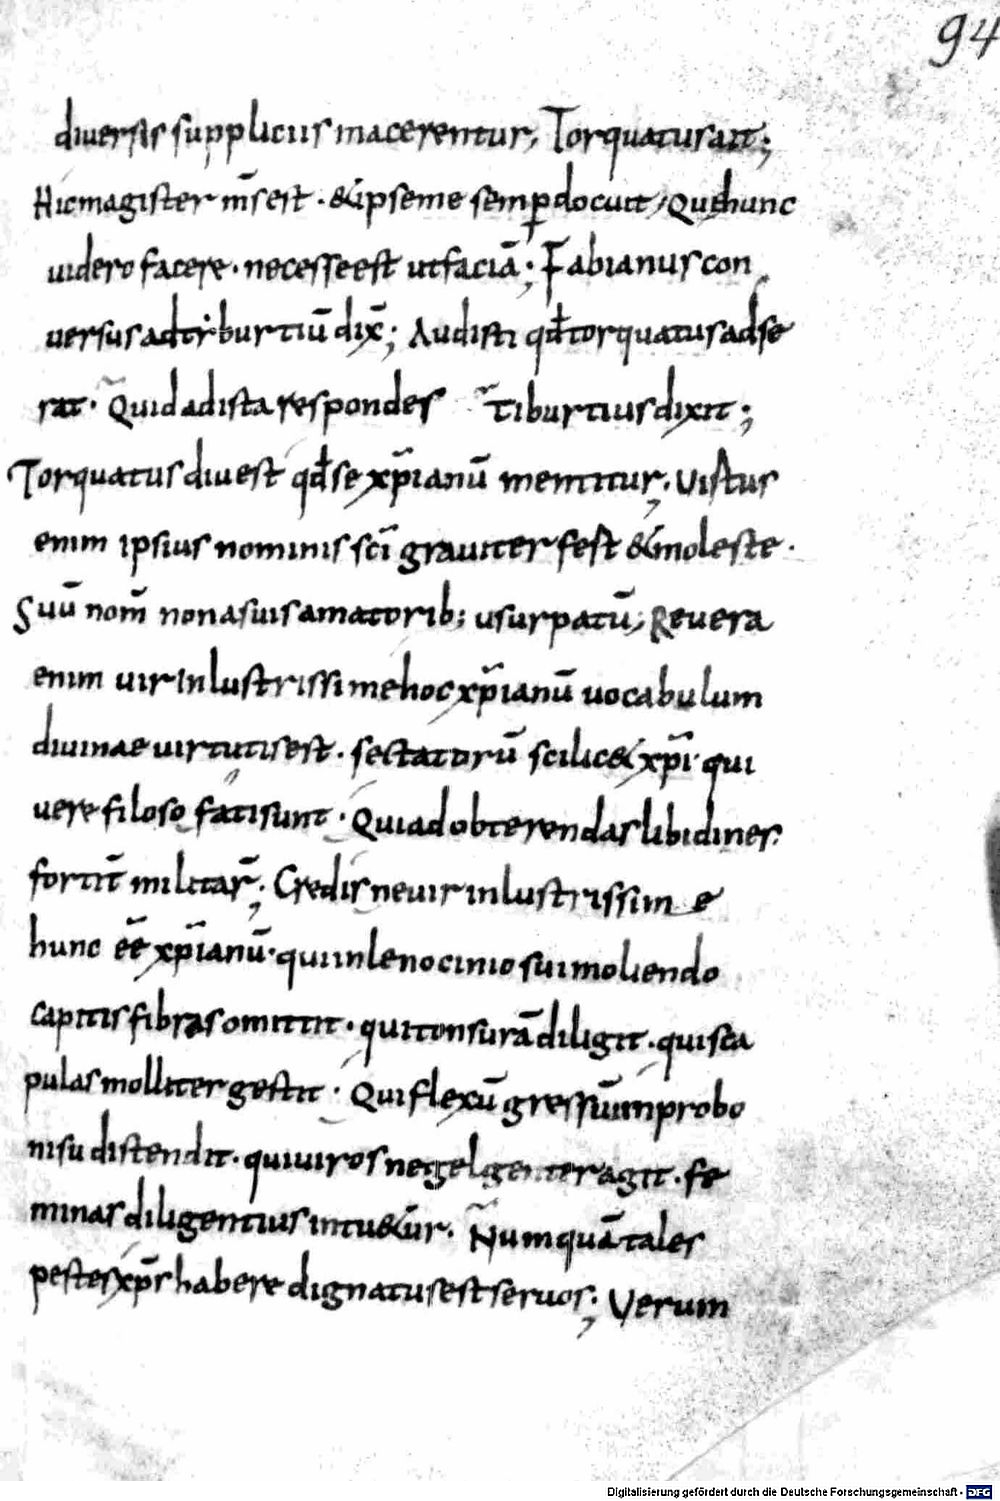 94
diversis suppliciis macerentur, Torquatus ait;
Hic magister m̄s est · & ipse me semꝑ docuit, Quę hunc
videro facere · necesse est ut faciā; Fabianus con
versus ad tiburtiū dix̄; Audisti qđ torquatus adse
rat · Quid ad ista respondes ~ tiburtius dixit;
Torquatus diu est qđ se xp̄ianū mentitur; Vistus
enim ipsius nominis sc̄i graviter fest & moleste ·
Suū nom̄ non a suis amatorib; usurpatū; Revera
enim vir inlustrissime hoc xp̄ianū vocabulum
divinae virtutis est · sectatorū scilic& xp̄i · qui
vere filosofati sunt · Quia ad obterendas libidines
fortit̄ militar̄; Credis ne vir inlustrissime
hunc ēē xp̄ianū · qui in lenocinio sui moliendo
capitis fibras omittit · qui tonsurā diligit · qui sca
pulas molliter gestit · Qui flexū gressū improbo
nisu distendit · qui viros negelgenter agit · fe
minas diligentius intu&ur · Numquā tales
pestes xp̄s habere dignatus est servos; Verum
Digitalisierung gefördert durch die Deutsche Forschungsgemeinschaft - DFG